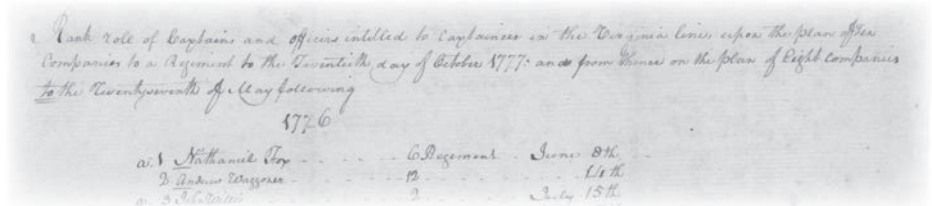 Rank role of Captains and officers intitled to Captaincies in the Virginia line, upon the plan of Ten
Companies to a Regiment to the Twentieth day of October 1777 and from thence on the plan of Eight companies
to the Twentyseventh of May following
1776
a. 1 Nathaniel Fox - - - - - 6 Regement - June 8th
2 Andrew Waggoner - - - - 12 - - - - 14th
3 - - - - 2 - - - - July 15th